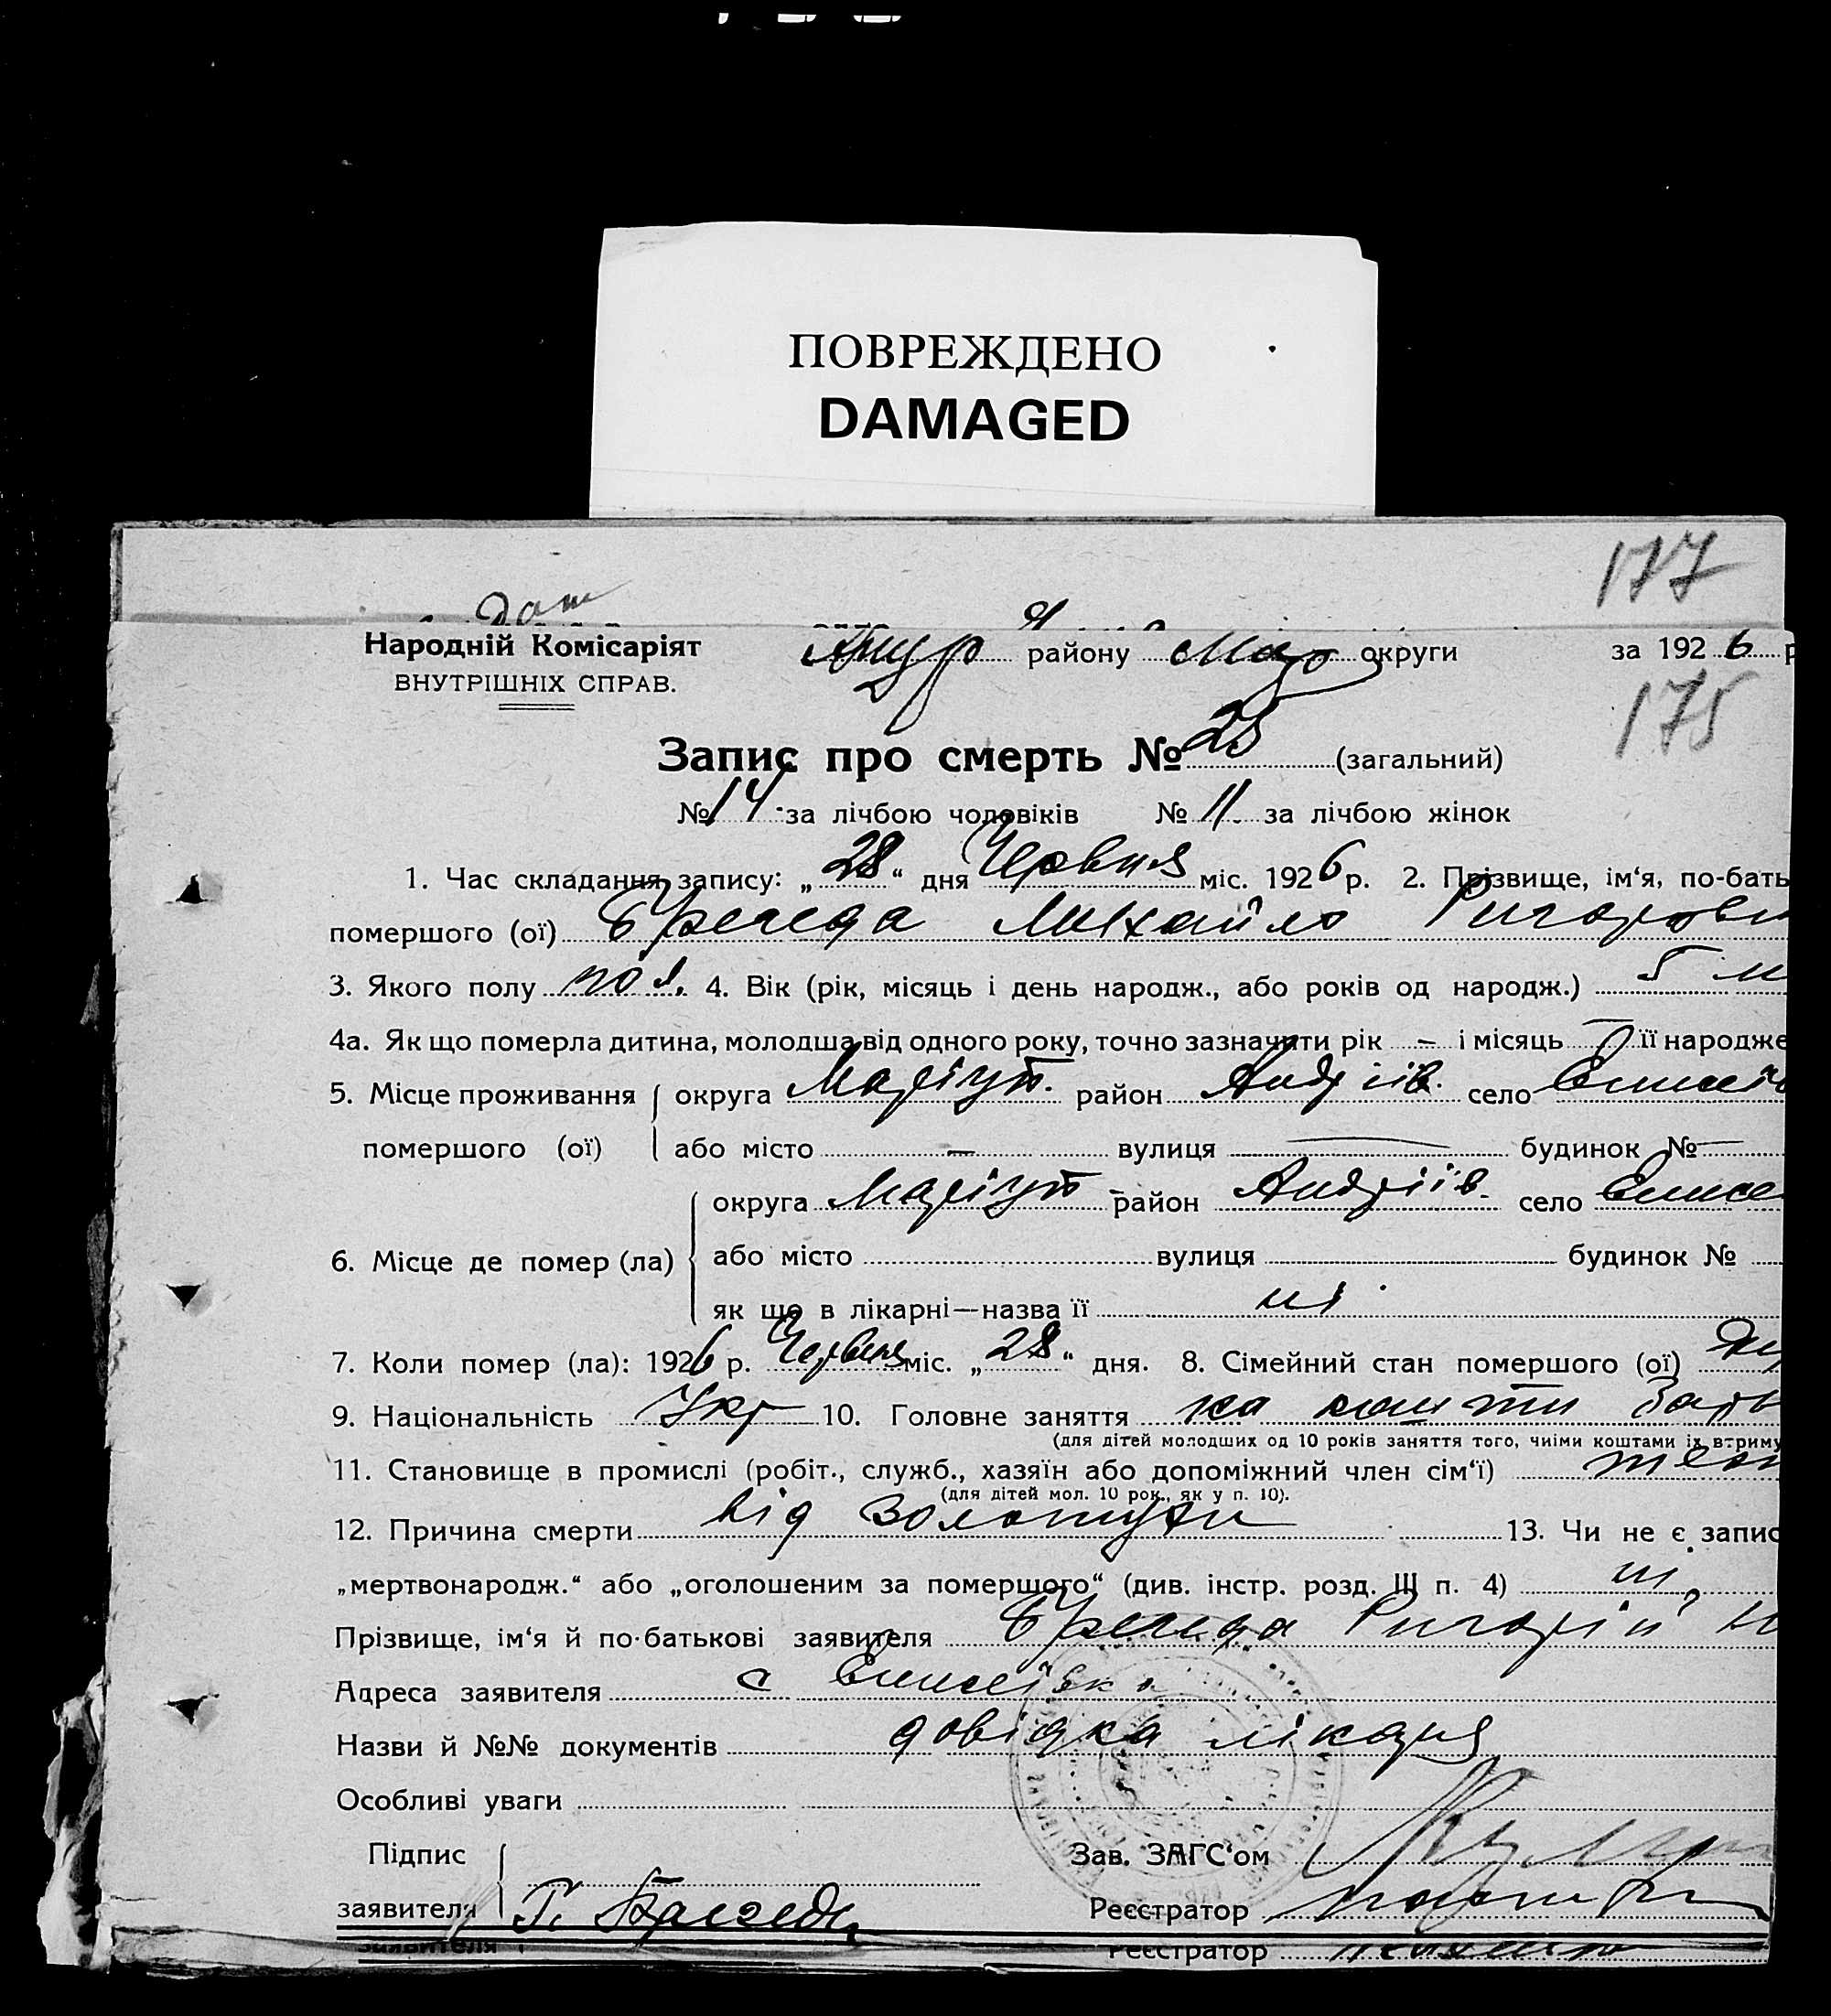 ПОВРЕЖДЕНО
DAMAGED
177
Народній Комісаріят
ВНУТРІШНІХ СПРАВ.
району Мар округи за 1926 р
175
Запис про смерть № 25 (загальний)
№ 14 за лічбою чоловіків № 11 за лічбою жінок
1. Час складання запису: „28“ дня Червня міс. 1926 р. 2. Прізвище, ім‘я, по-бать
помершого (ої) Михайло Ригорови
3. Якого полу 4. Вік (рік, місяць і день народж., або років од народж.) 5 м
4а. Як що померла дитина, молодша від одного року, точно зазначити рік – і місяць – її народже
5. Місце проживання округа Маріуп. район Андріїв. село Єлисеї
помершого (ої) або місто — вулиця — будинок № —
округа Маріуп район Андріїв. село Єлисе
6. Місце де помер (ла) або місто вулиця будинок №
як що в лікарні—назва її ні
7. Коли помер (ла): 1926 р. Червня міс. „28“ дня. 8. Сімейний стан помершого (ої)
9. Національність Укр 10. Головне заняття на кошти
(для дітей молодших од 10 років заняття того, чиїми коштами їх втриму
11. Становище в промислі (робіт., служб., хазяїн або допоміжний член сім‘ї)
(для дітей мол. 10 рок., як у п. 10).
12. Причина смерти від золотухи 13. Чи не є запис
„мертвонародж.“ або „оголошеним за помершого“ (див. інстр. розд. III п. 4) ні.
Прізвище, ім‘я й по-батькові заявителя Ригорій
Адреса заявителя с Єлисеївка
Назви й №№ документів довідка лікаря
Особливі уваги
Підпис Зав. ЗАГС‘ом
заявителя Г. Реєстратор
заявителя Реєстратор